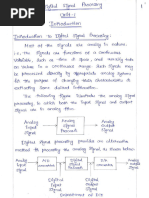 Digital Signal Processing
Unit-1
Introduction
Introduction to Digital Signal Processing:-
Most of the signals are analog in nature.
i.e., the signals are functions of a continuous
variable, such as time or space and usually
on values in a continuous range. Such signals may
be processed directly by appropriate analog system
for the purpose of changing their characteristics
or extracting some desired information.
The following figure illustrates the analog
signal processing
Analog
Input
signal
Analog
Signal
Processor
Analog
Output
signal
Digital signal processing provides an alternative
method for processing the analog signal, as shown below.
Analog
Input
Signal
A/D
converter
Digital
Signal
Processor
D/A
converter
Analog
Output
Signal
Digital
Input
Signal
Digital
Output
Signal